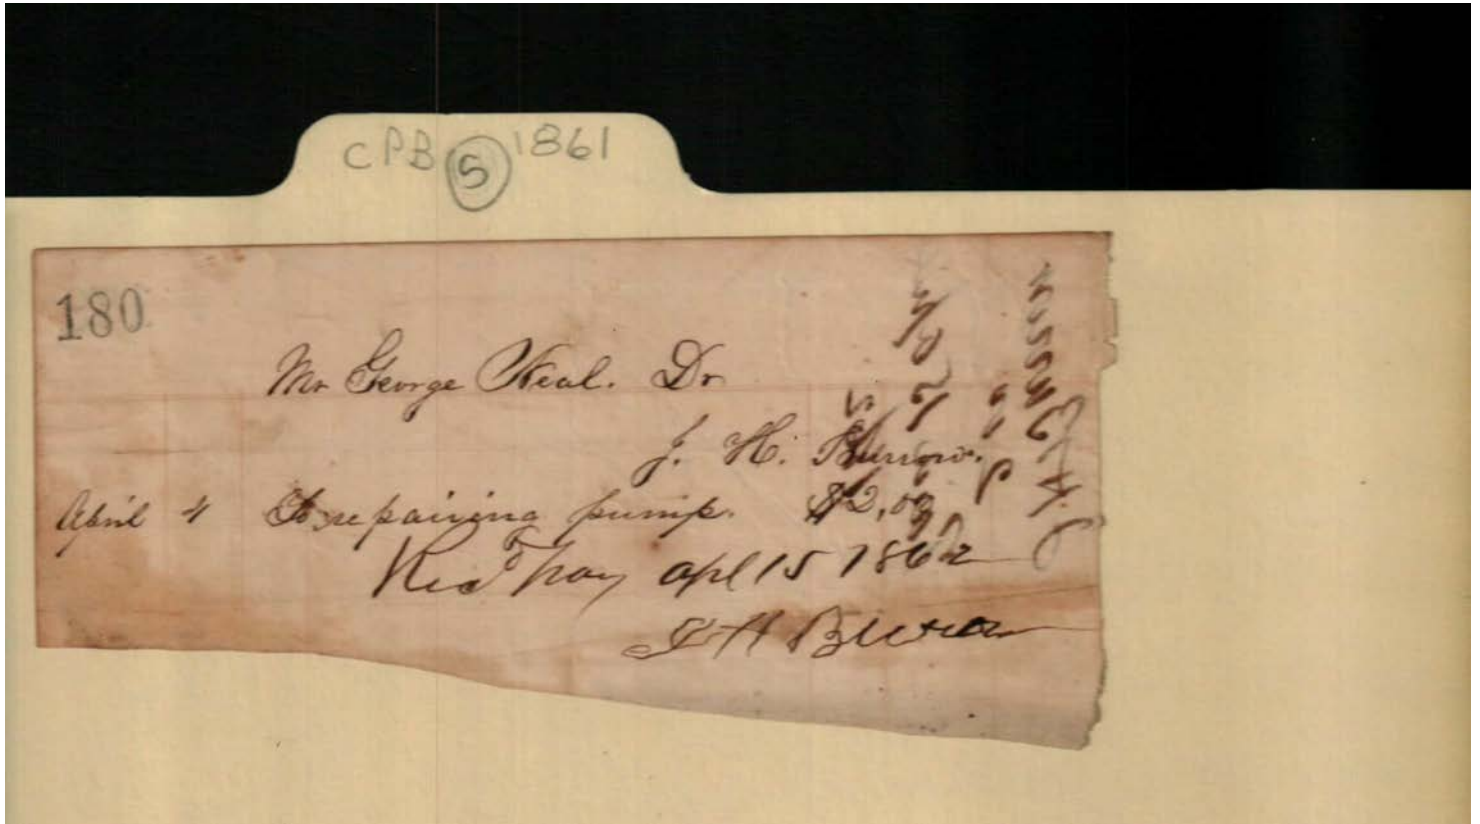 CPB (5) 1861
180
Mr George Neal. Dr
J. H. Burrow.
April 4 To repairing pump. $2,00
Recd pay apl 15 1862
J H Burrow